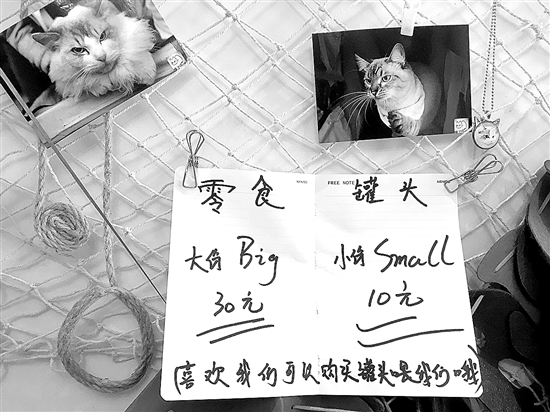 FREE NOTE
零食 罐头
大份 Big 小份 Small
30元 10元
(喜欢我们可以购买罐头喂我们哦)